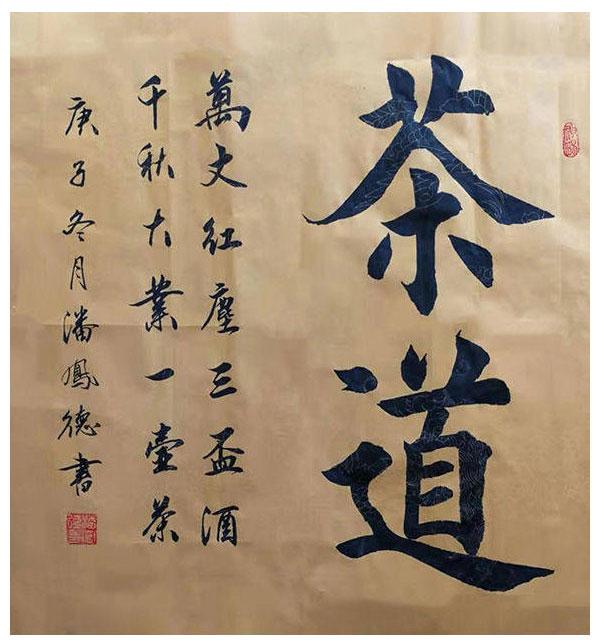 茶道
萬丈紅塵三盃酒
千秋大業一壺茶
庚子冬月潘鳳德書